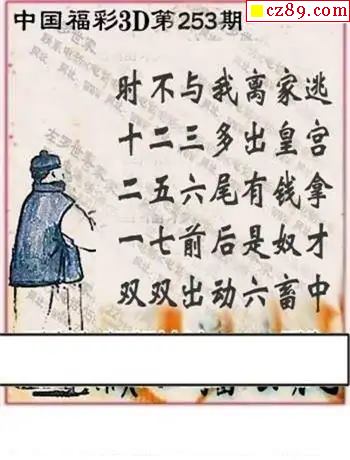 cz89.com
中国福彩3D第253期
时不与我离家逃
十二三多出皇宫
二五六尾有钱拿
一七前后是奴才
双双出动六畜中